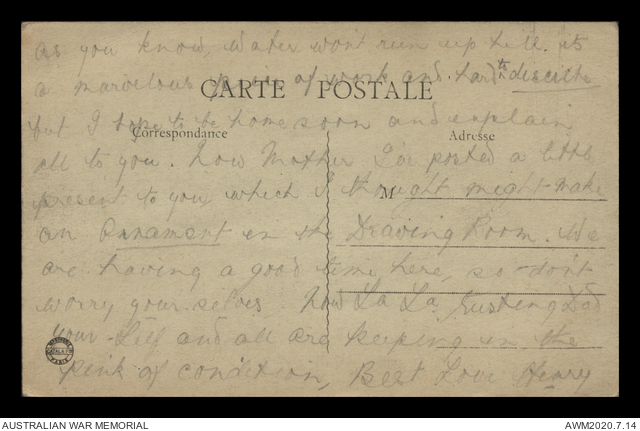 as you know, water won't run up hill. its
a marvellous piece of work and hard to describe
CARTE POSTALE
but I hope to be home soon and explain
Correspondance
Adresse
all to you. Now Mother I've posted a little
present to you which I thought might make
M
an Ornament in the Drawing Room. We
are having a good time here, so don't
worry your selves. Now La La, trusting Dad
your-self and all are keeping in the
pink of condition, Best Love Henry
PARIS
AUSTRALIAN WAR MEMORIAL
AWM2020.7.14